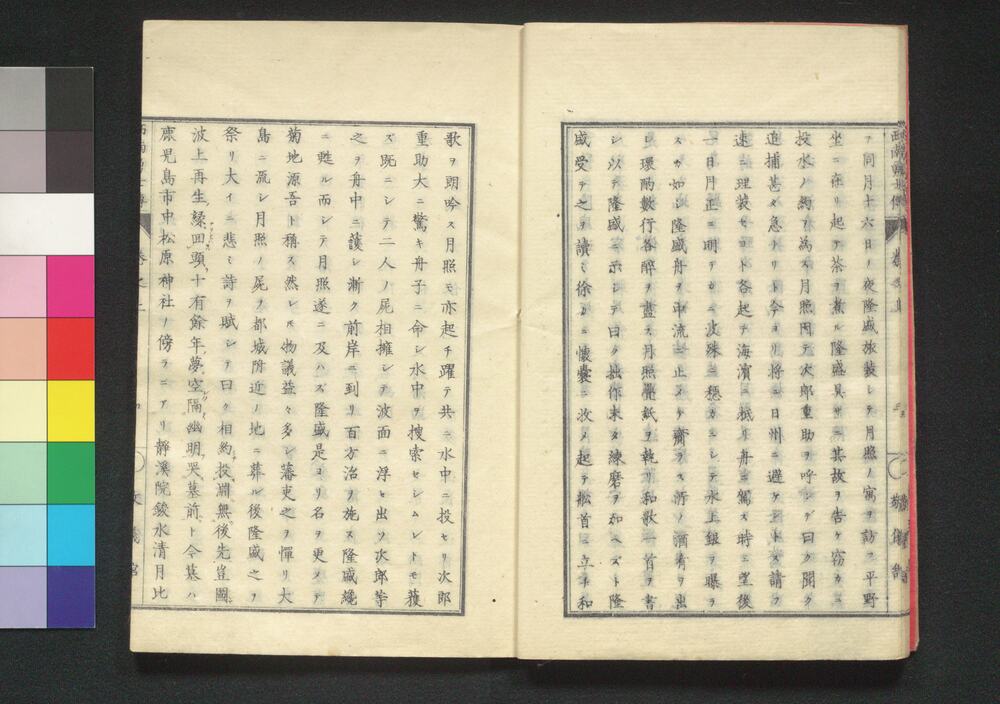 ヲ同月十六日ノ夜隆盛旅装シテ月照ノ寓ヲ訪フ平野
坐ニ在リ起テ茶ヲ煮ル隆盛具サニ其故ヲ告ケ窃カニ
投水ノ約ヲ為ス月照因テ次郎重助ヲ呼ンデ曰ク聞ク
追捕甚タ急ナリト今ヨリ将ニ日州ニ避ケントス請フ
速ニ理装セヨト各起テ海濱ニ抵リ舟ニ駕ス時ニ望後
一日月正ニ明テカニ波殊ニ穏カニシテ水上銀ヲ曝ラ
スカ如シ隆盛舟ヲ中流ニ止メテ齎ラス所ノ酒肴ヲ出
シ環酌數行各醉ヲ盡ス月照疊紙ヲ執リ和歌一首ヲ書
シ以テ隆盛ニ示シテ曰ク拙作未タ練磨ヲ加ヘズト隆
盛受テ之ヲ讀ミ徐カニ懐嚢ニ收メ起テ舩首ニ立ト和
歌ヲ朗吟ス月照モ亦起チ躍テ共ニ水中ニ投セリ次郎
重助大ニ驚キ舟子ニ命シ水中ヲ捜索セシムレトモ獲
ズ既ニシテ二人ノ屍相擁シテ波面ニ浮ヒ出ツ次郎等
之ヲ舟中ニ護シ漸ク前岸ニ到リ百方治ヲ施ス隆盛纔
ニ甦ル而シテ月照遂ニ及ハズ隆盛是ヨリ名ヲ更メテ
菊地源吾ト稱ス然レトモ物議益々多シ藩吏之ヲ憚リ大
島ニ流シ月照ノ屍ヲ都城附近ノ地ニ葬ル後隆盛之ヲ
祭リ大イニ悲ミ詩ヲ賦シテ曰ク相約投淵無後先豈圖
波上再生縁回頭十有餘年夢空隔幽明哭墓前ト今墓ハ
鹿児島市中松原神社ノ傍ラニアリ靜溪院鋑水清月比